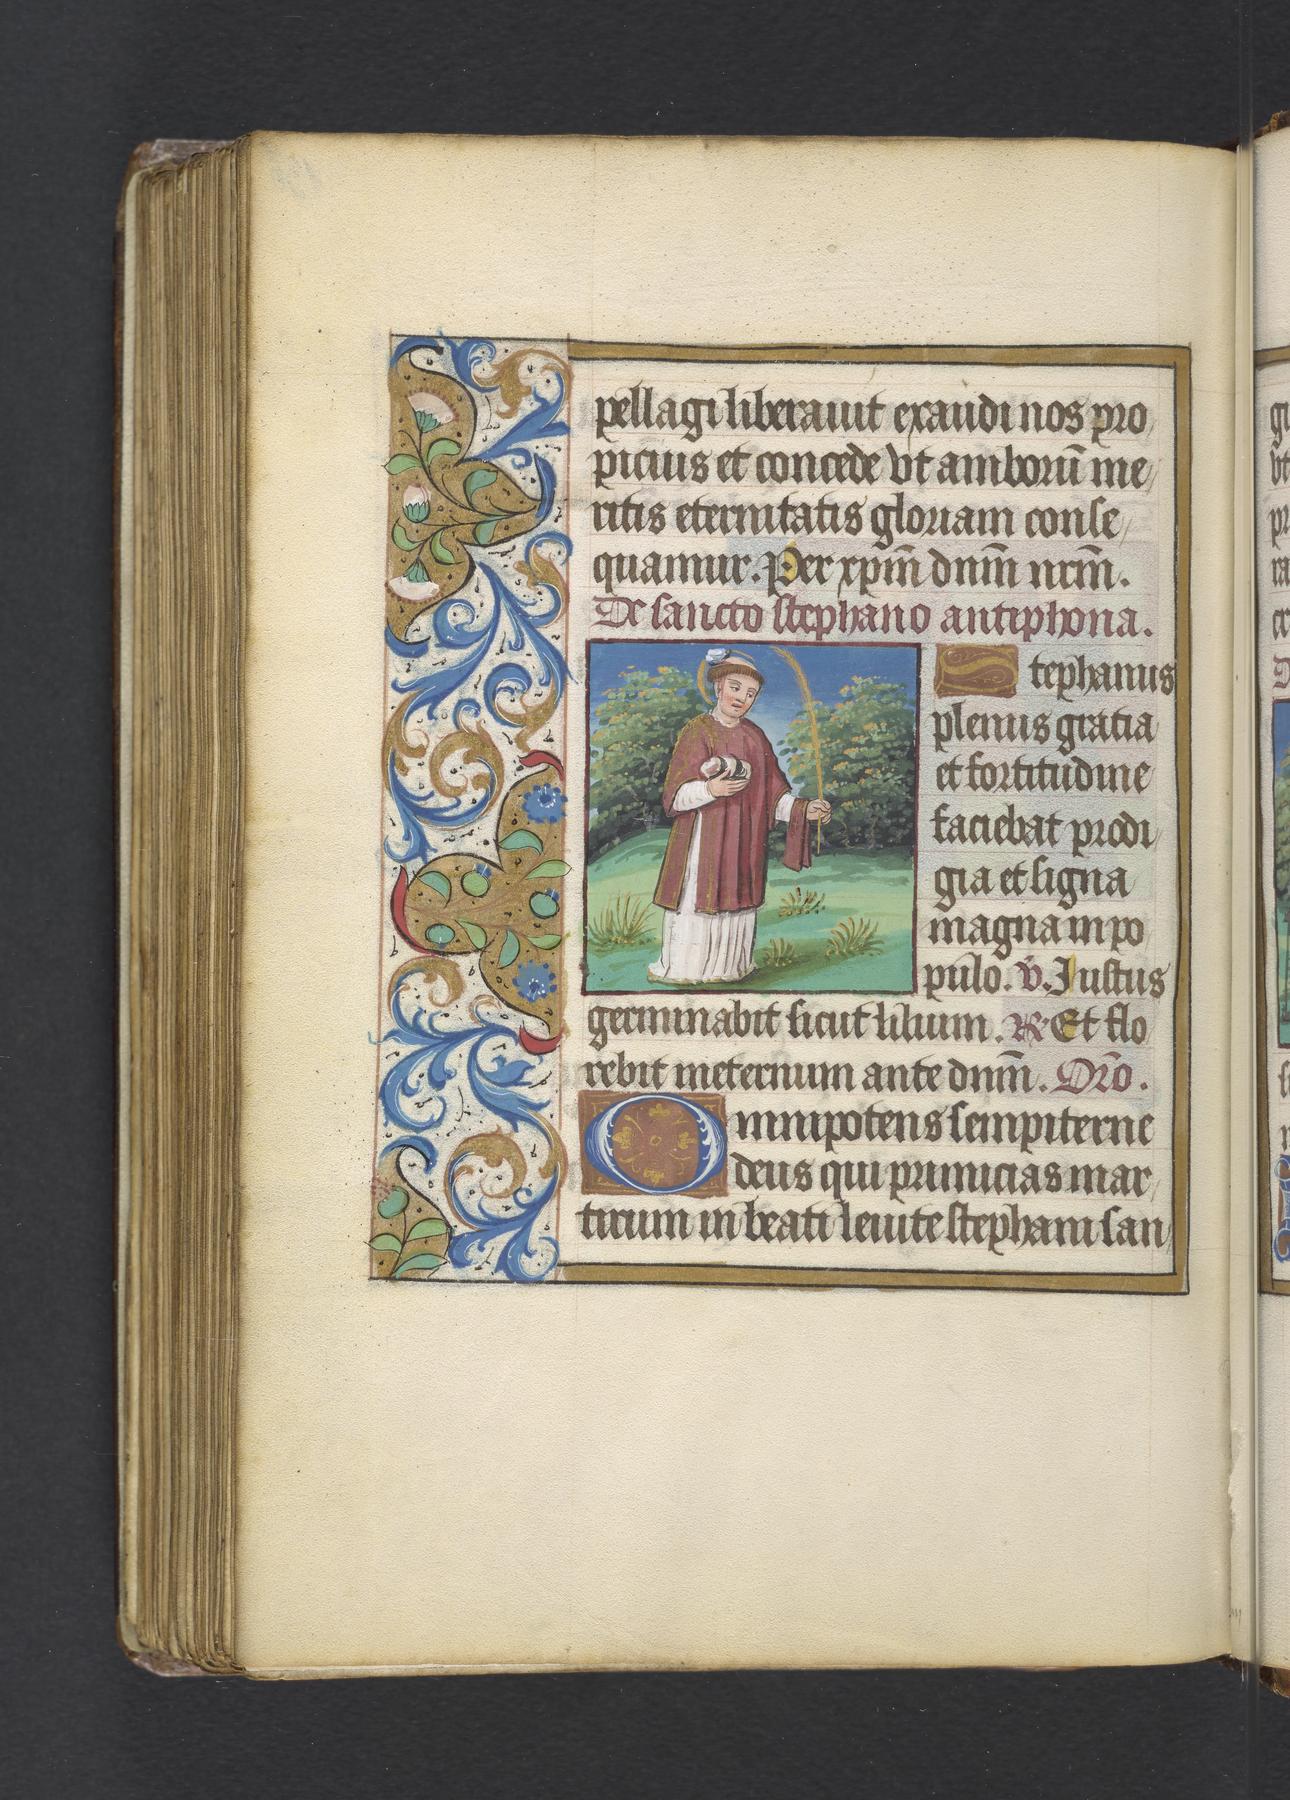 pellagi liberauit exaudi nos pro
picius et concede vt amborū me
ritis eternitatis gloriam conse
quamur. Per xpm̄ dnm̄ nrm̄.
De sancto stephano antiphona.
Stephanus
plenus gratia
et fortitudine
faciebat prodi
gia et signa
magna in po
pulo. v. Iustus
germinabit sicut lilium. R. Et flo
rebit ineternum ante dnm̄. Oro.
Omnipotens sempiterne
deus qui primicias mar
tirum in beati leuite stephani san